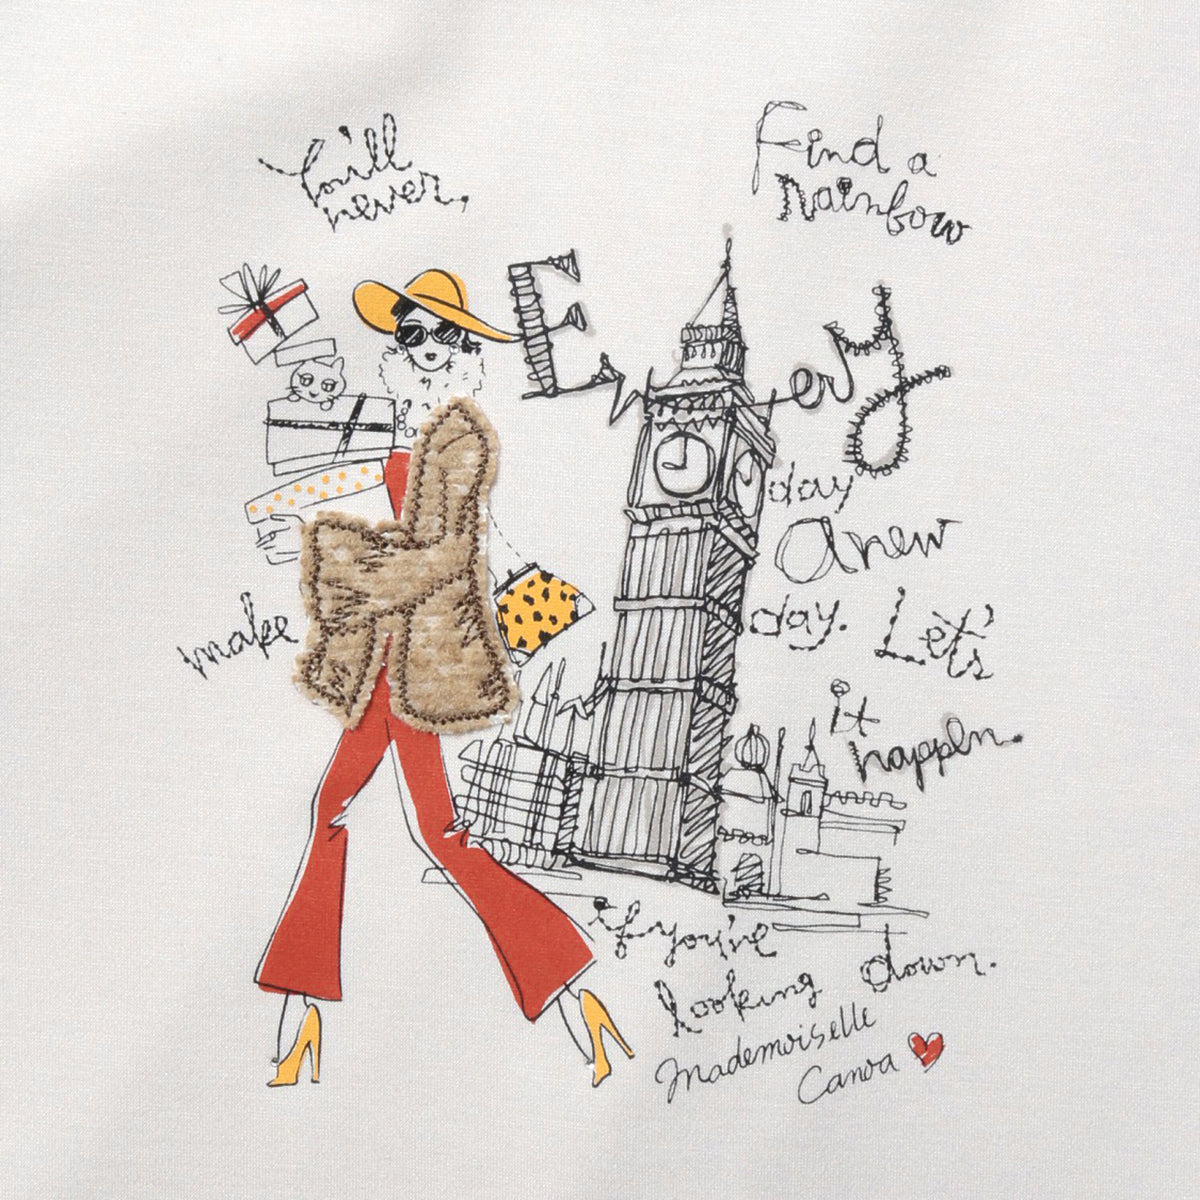 You'll
never,
Find a
rainbow
Every
day
a new
day. Let's
make
it
happen.
if you're
looking down.
Mademoiselle
Canoa